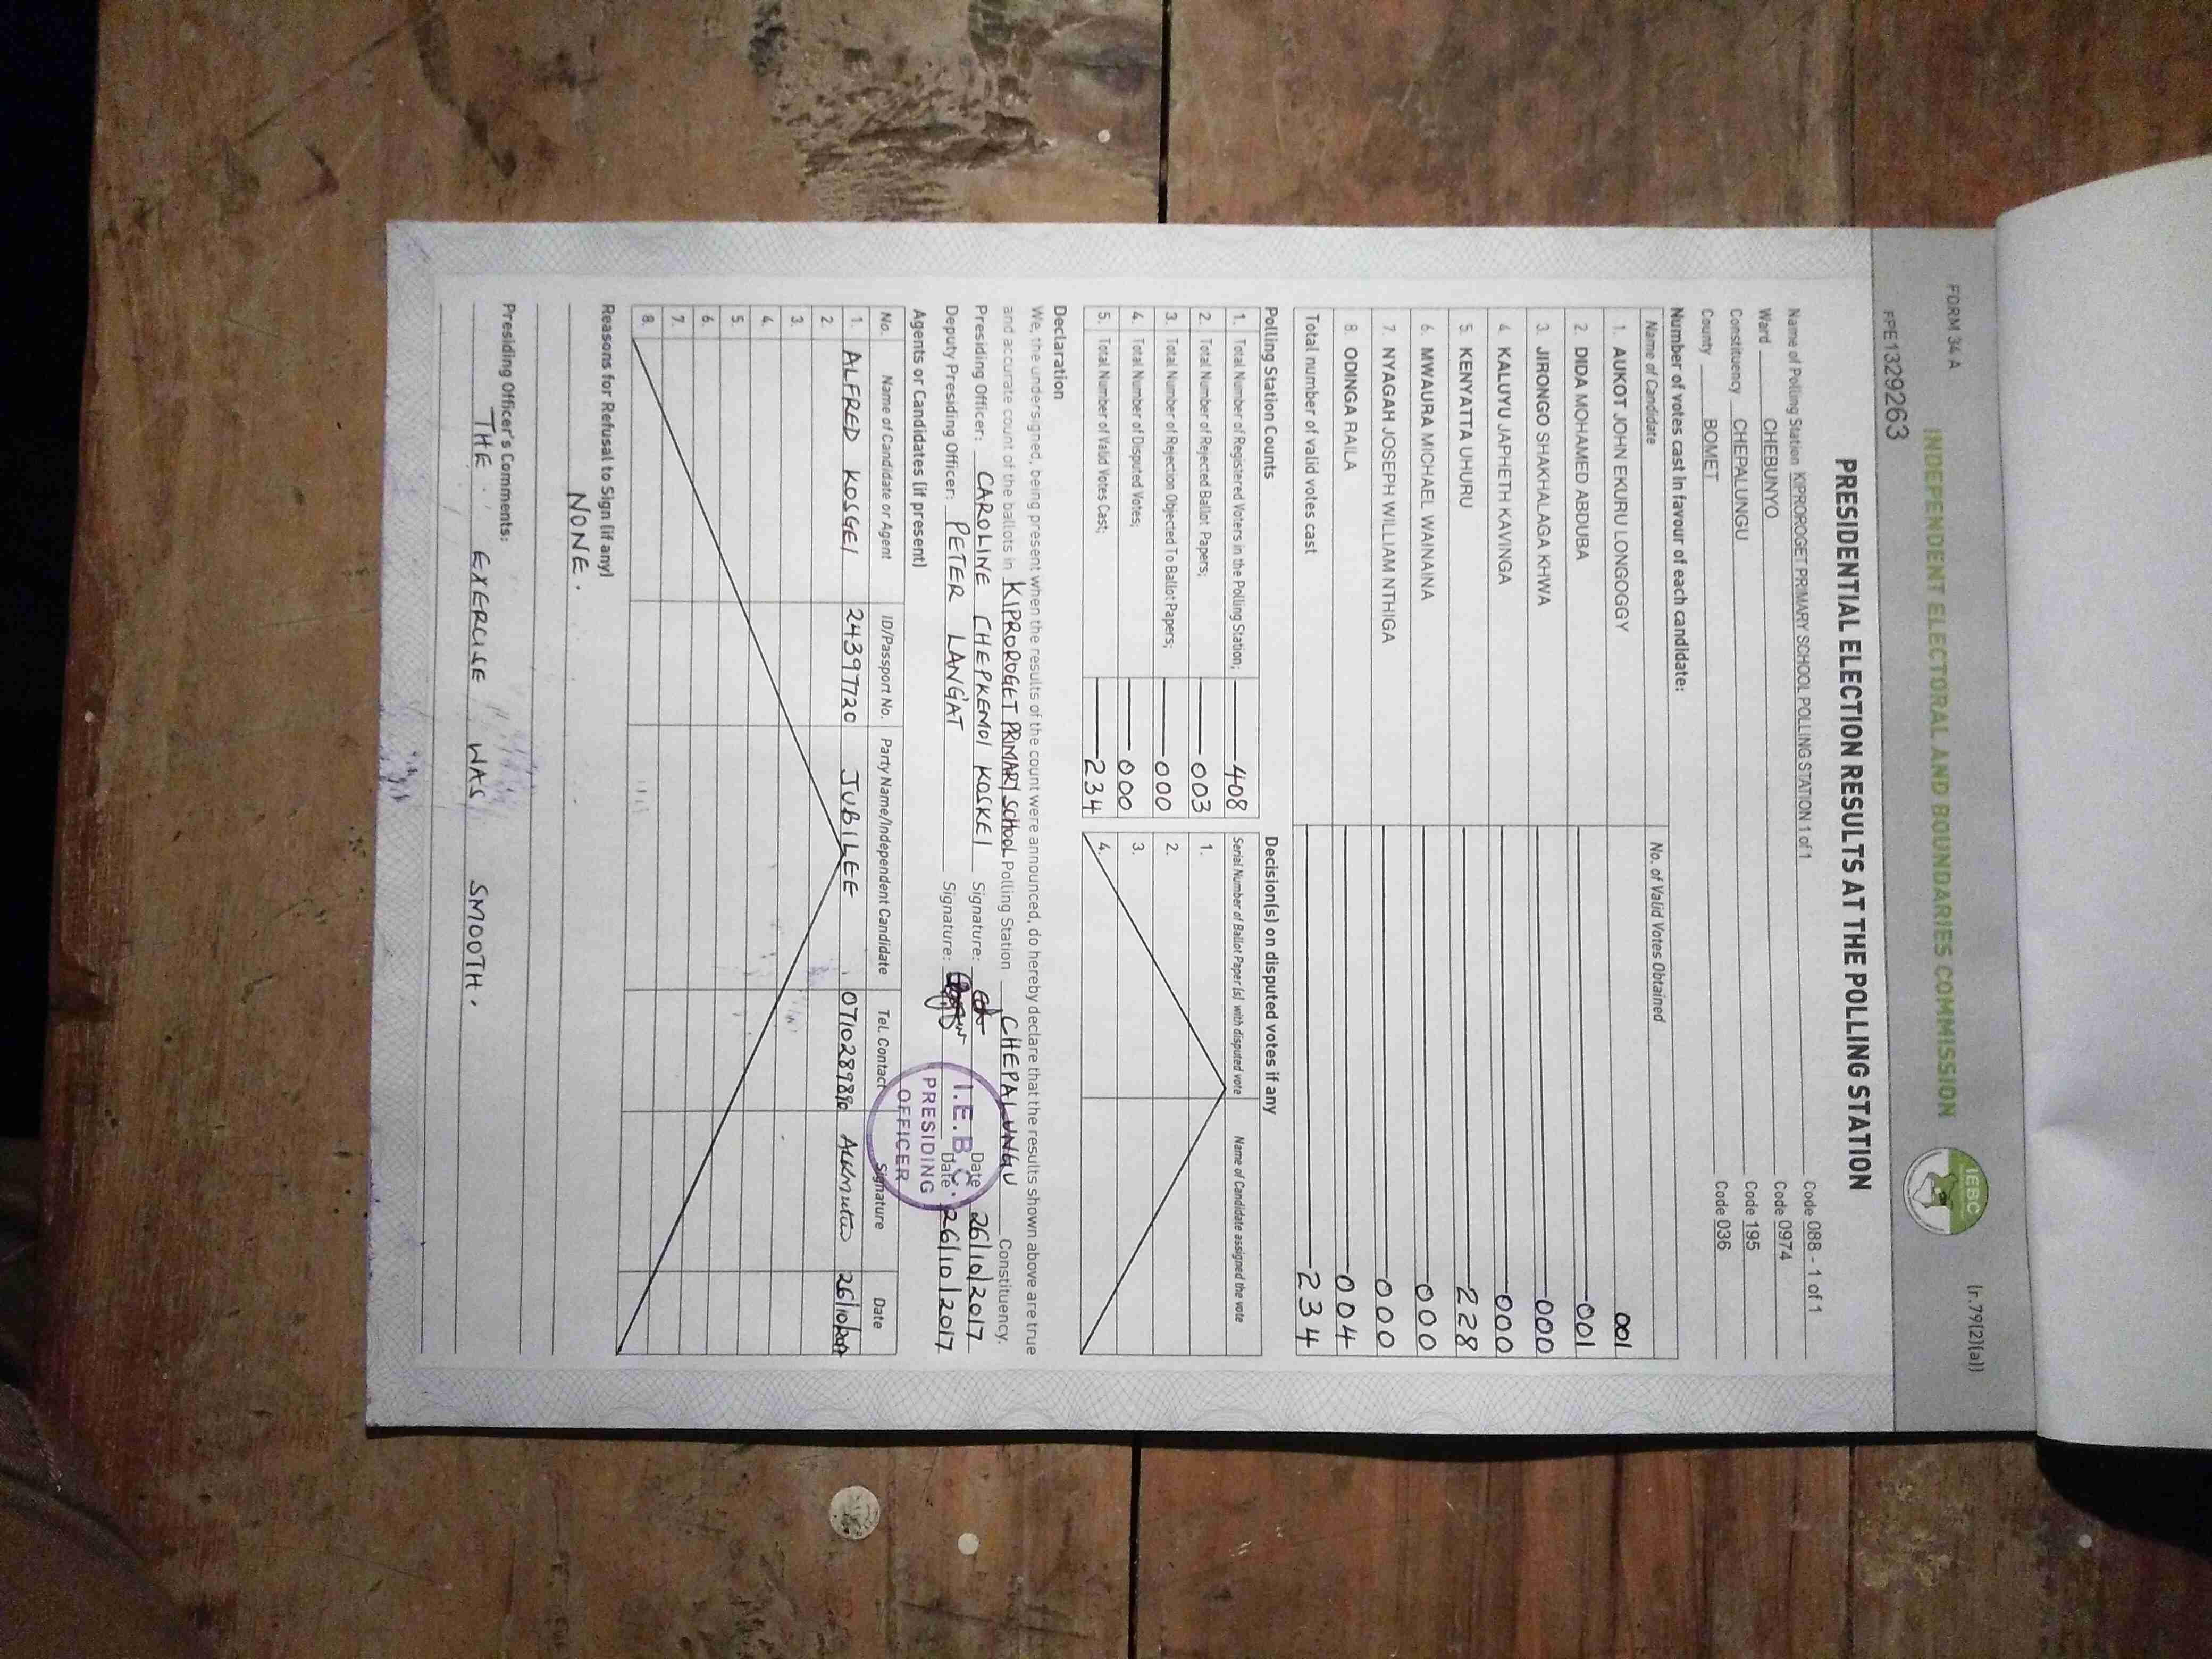 FORM 34 A
(r.79(2)(a))
INDEPENDENT ELECTORAL AND BOUNDARIES COMMISSION
IEBC
FPE1329263
PRESIDENTIAL ELECTION RESULTS AT THE POLLING STATION
Name of Polling Station KIPROROGET PRIMARY SCHOOL POLLING STATION 1 of 1 Code 088 - 1 of 1
Ward CHEBUNYO Code 0974
Constituency CHEPALUNGU Code 195
County BOMET Code 036
Number of votes cast in favour of each candidate:
Name of Candidate No. of Valid Votes Obtained
1. AUKOT JOHN EKURU LONGOGGY 001
2. DIDA MOHAMED ABDUBA 001
3. JIRONGO SHAKHALAGA KHWA 000
4. KALUYU JAPHETH KAVINGA 000
5. KENYATTA UHURU 228
6. MWAURA MICHAEL WAINAINA 000
7. NYAGAH JOSEPH WILLIAM NTHIGA 000
8. ODINGA RAILA 004
Total number of valid votes cast 234
Polling Station Counts
1. Total Number of Registered Voters in the Polling Station; 408
2. Total Number of Rejected Ballot Papers; 003
3. Total Number of Rejection Objected To Ballot Papers; 000
4. Total Number of Disputed Votes; 000
5. Total Number of Valid Votes Cast; 234
Decision(s) on disputed votes if any
Serial Number of Ballot Paper (s) with disputed vote Name of Candidate assigned the vote
1.
2.
3.
4.
Declaration
We, the undersigned, being present when the results of the count were announced, do hereby declare that the results shown above are true
and accurate count of the ballots in KIPROROGET PRIMARY SCHOOL Polling Station CHEPALUNGU Constituency.
Presiding Officer: CAROLINE CHEPKEMOI KOSKEI Signature: Date 26/10/2017
Deputy Presiding Officer: PETER LANGAT Signature: Date 26/10/2017
I.E.B.C.
PRESIDING
OFFICER
Agents or Candidates (if present)
No. Name of Candidate or Agent ID/Passport No. Party Name/Independent Candidate Tel. Contact Signature Date
1. ALFRED KOSGEI 24397720 JUBILEE 26/10/2017
2.
3.
4.
5.
6.
7.
8.
Reasons for Refusal to Sign (if any)
NONE.
Presiding Officer's Comments:
THE EXERCISE WAS SMOOTH.